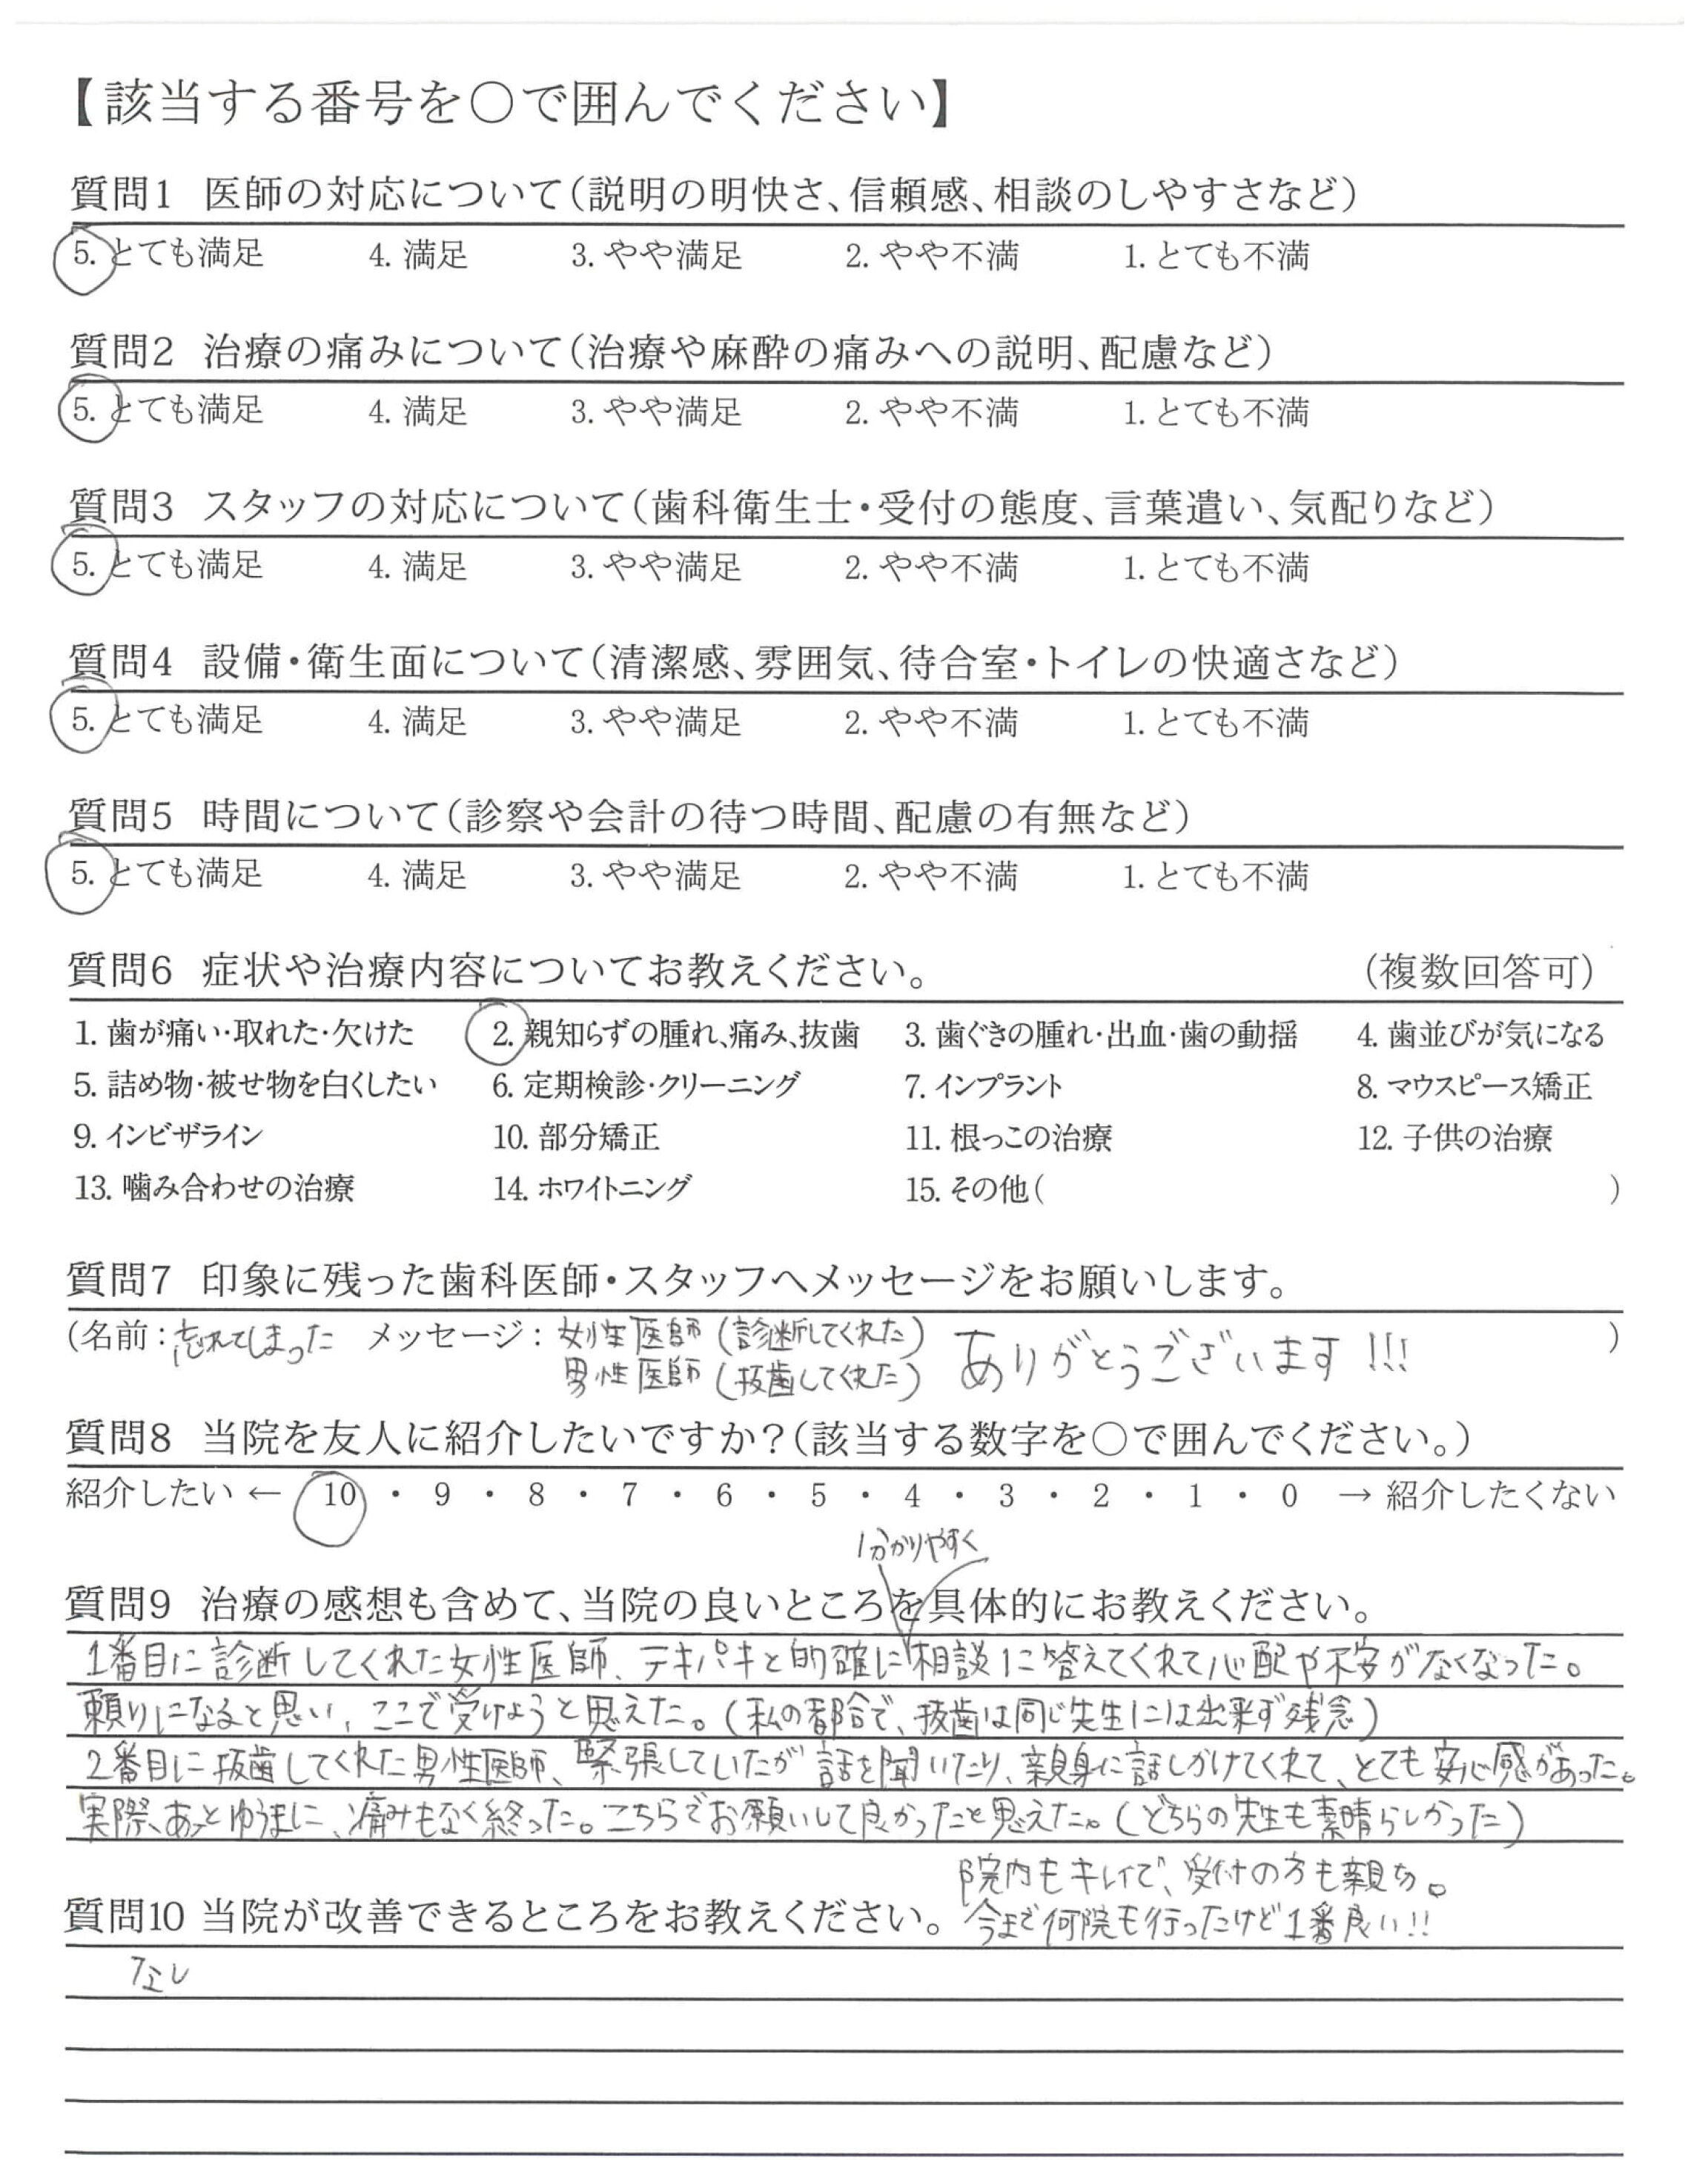 【該当する番号を○で囲んでください】
質問1 医師の対応について(説明の明快さ、信頼感、相談のしやすさなど)
5. とても満足 4. 満足 3. やや満足 2. やや不満 1. とても不満
質問2 治療の痛みについて(治療や麻酔の痛みへの説明、配慮など)
5. とても満足 4. 満足 3. やや満足 2. やや不満 1. とても不満
質問3 スタッフの対応について(歯科衛生士・受付の態度、言葉遣い、気配りなど)
5. とても満足 4. 満足 3. やや満足 2. やや不満 1. とても不満
質問4 設備・衛生面について(清潔感、雰囲気、待合室・トイレの快適さなど)
5. とても満足 4. 満足 3. やや満足 2. やや不満 1. とても不満
質問5 時間について(診察や会計の待つ時間、配慮の有無など)
5. とても満足 4. 満足 3. やや満足 2. やや不満 1. とても不満
質問6 症状や治療内容についてお教えください。 (複数回答可)
1. 歯が痛い・取れた・欠けた 2. 親知らずの腫れ、痛み、抜歯 3. 歯ぐきの腫れ・出血・歯の動揺 4. 歯並びが気になる
5. 詰め物・被せ物を白くしたい 6. 定期検診・クリーニング 7. インプラント 8. マウスピース矯正
9. インビザライン 10. 部分矯正 11. 根っこの治療 12. 子供の治療
13. 噛み合わせの治療 14. ホワイトニング 15. その他( )
質問7 印象に残った歯科医師・スタッフへメッセージをお願いします。
(名前：忘れてしまった メッセージ：女性医師(診断してくれた) ありがとうございます!!! )
男性医師(抜歯してくれた)
質問8 当院を友人に紹介したいですか？(該当する数字を○で囲んでください。)
紹介したい ← 10 ・ 9 ・ 8 ・ 7 ・ 6 ・ 5 ・ 4 ・ 3 ・ 2 ・ 1 ・ 0 → 紹介したくない
分かりやすく
質問9 治療の感想も含めて、当院の良いところを具体的にお教えください。
1番目に診断してくれた女性医師、テキパキと的確に相談に答えてくれて心配や不安がなくなった。
頼りになると思い、ここで受けようと思えた。(私の都合で、抜歯は同じ先生には出来ず残念)
2番目に抜歯してくれた男性医師、緊張していたが話を聞いたり、親身に話しかけてくれて、とても安心感があった。
実際、あっとゆうまに、痛みもなく終った。こちらでお願いして良かったと思えた。(どちらの先生も素晴らしかった)
院内もキレイで、受付の方も親切。
質問10 当院が改善できるところをお教えください。 今まで何院も行ったけど1番良い!!
なし